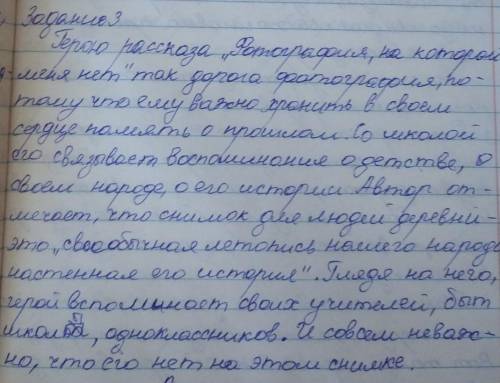 Задание 3
Герою рассказа „Фотография, на которой
меня нет" так дорога фотография, по-
тому что ему важно хранить в своем
сердце память о прошлом. Со школой
его связывает воспоминания о детстве, о
своем народе, о его истории. Автор от-
мечает, что снимок для людей деревни-
это „своеобычная летопись нашего народа
настенная его история". Глядя на него,
герой вспоминает своих учителей, быт
школы, одноклассников. И совсем неваж-
но, что его нет на этом снимке.